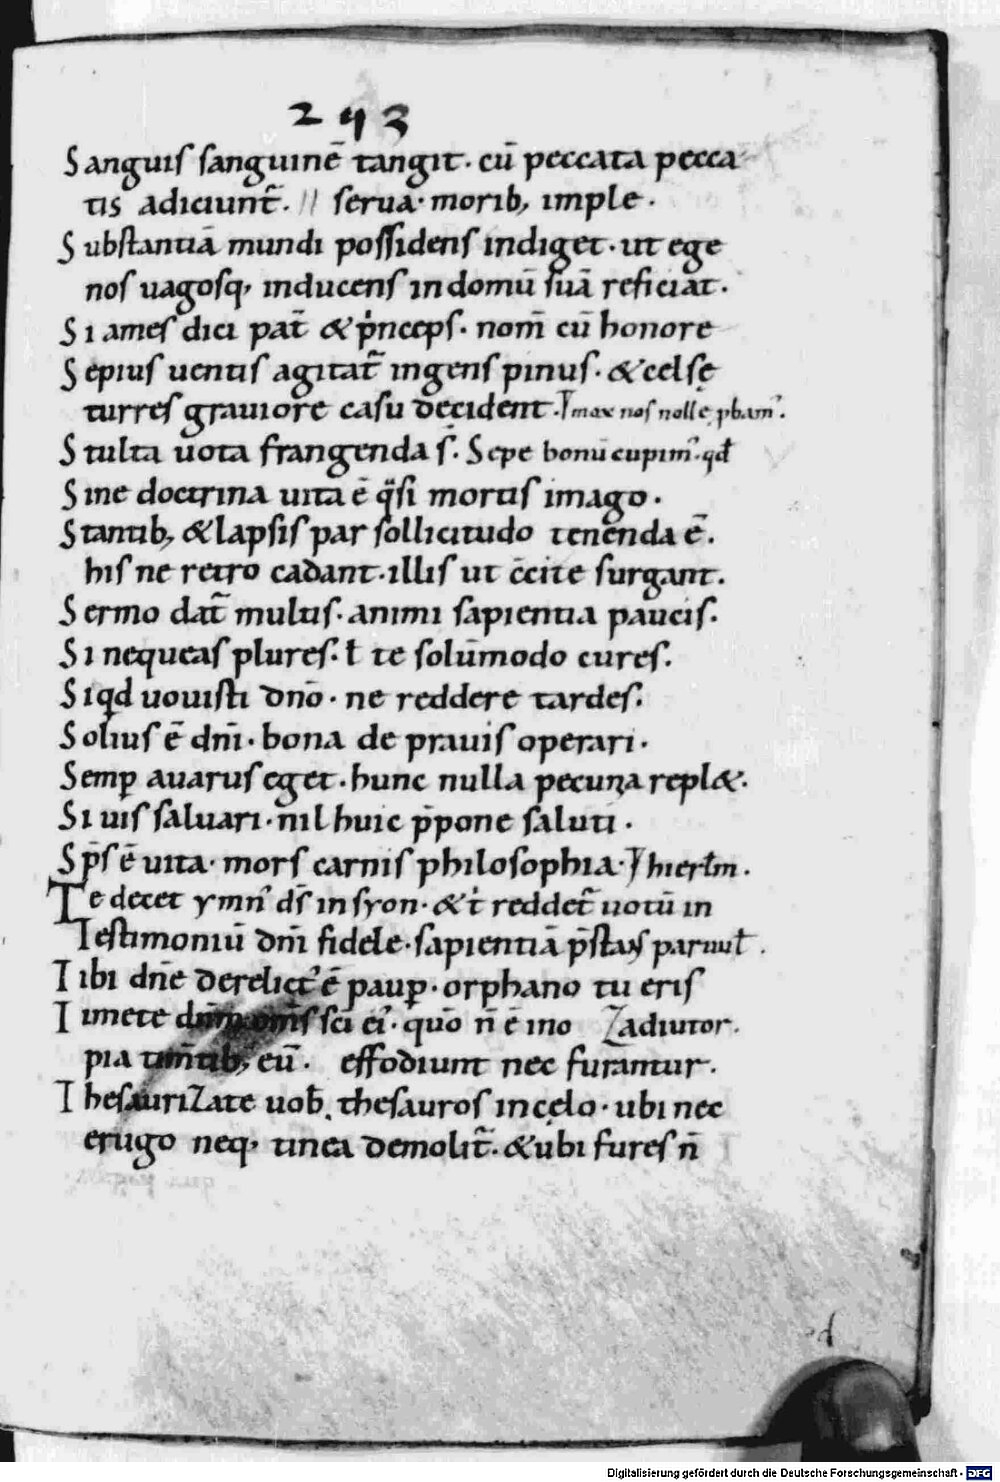 293
Sanguis sanguinē tangit. cū peccata pecca
tis adiciunt̄. // serua. morib; imple.
Substantiā mundi possidens indiget. ut ege
nos uagosq; inducens in domū suā reficiat.
Si ames dici pat̄ & p̍nceps. nom̄ cū honore
Sepius uentis agitat̄ ingens pinus. & celsę
turres grauiore casu decident. mox nos nolle ꝓbam᾽.
Stulta uota frangenda s̄. Sepe bonū cupim᾽. qd̄
Sine doctrina uita ē q̄si mortis imago.
Stantib; & lapsis par sollicitudo tenenda ē.
his ne retro cadant. illis ut c̄cite surgant.
Sermo dat̄ multis. animi sapientia paucis.
Si nequeas plures. ł te solūmodo cures.
Siqd uouisti dn̄o. ne reddere tardes.
Solius ē dn̄i. bona de prauis operari.
Semp̱ auarus eget. hunc nulla pecunia repl&.
Si uis saluari. nil huic p̄pone saluti.
Sp̄s ē uita. mors carnis philosophia. hierłm.
Te decet ymn᾽ ds̄ in syon. & t̍ reddet̄ uotū in
Testimoniū dn̄i fidele. sapientiā p̄stans paruuł.
Tibi dn̄e derelict᾽ ē paup̱. orphano tu eris
Timete dn̄m om̄s sc̄i ei᾽. quō n̄ ē ino adiutor.
pia tim̄tib; eū. effodiunt nec furantur.
Thesaurizate uob̄. thesauros in cęlo. ubi nec
erugo neq; tinea demolit̄. & ubi fures n̄
Digitalisierung gefördert durch die Deutsche Forschungsgemeinschaft - DFG